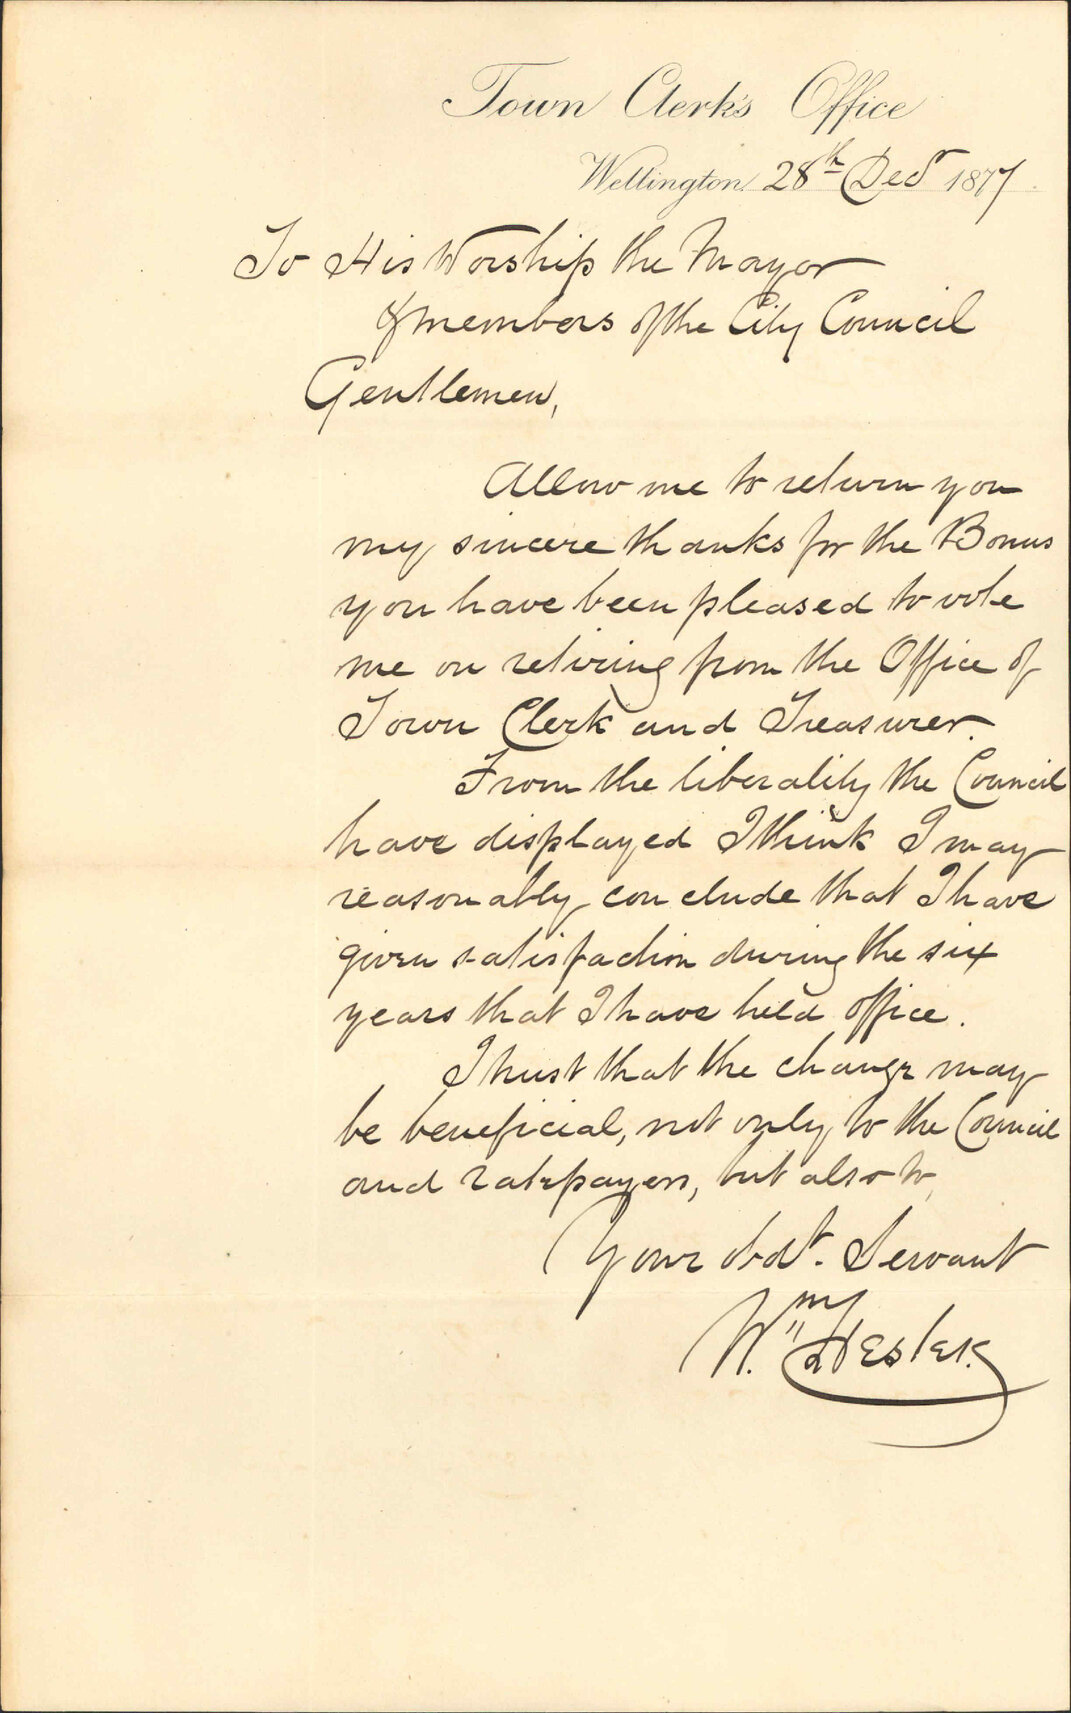 Town Clerk's Office
Wellington 28th Decr 1877
To His Worship the Mayor
& members of the City Council
Gentlemen,
Allow me to return you
my sincere thanks for the Bonus
you have been pleased to vote
me on retiring from the Office of
Town Clerk and Treasurer.
From the liberality the Council
have displayed I think I may
reasonably conclude that I have
given satisfaction during the six
years that I have held office.
I trust that the change may
be beneficial, not only to the Council
and ratepayers, but also to,
Your obdt. Servant
Wm Hester